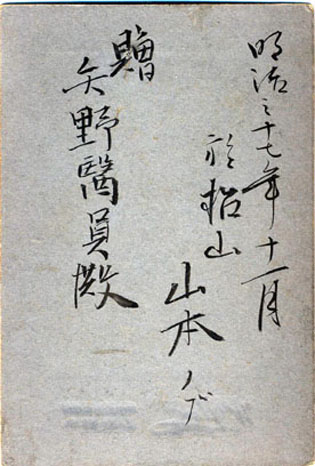 明治三十七年十一月
於松山
山本ノブ
贈
矢野醫員殿